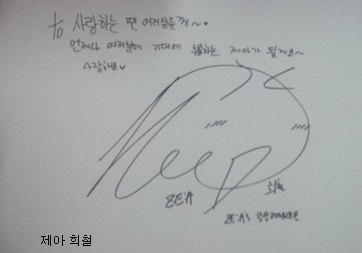 to. 사랑하는 팬 여러분들께~
언제나 여러분에 기대에 부응하는 제아가 될게요~
사랑해요♥
ZE:A
희철
ZE:A's
제아 희철